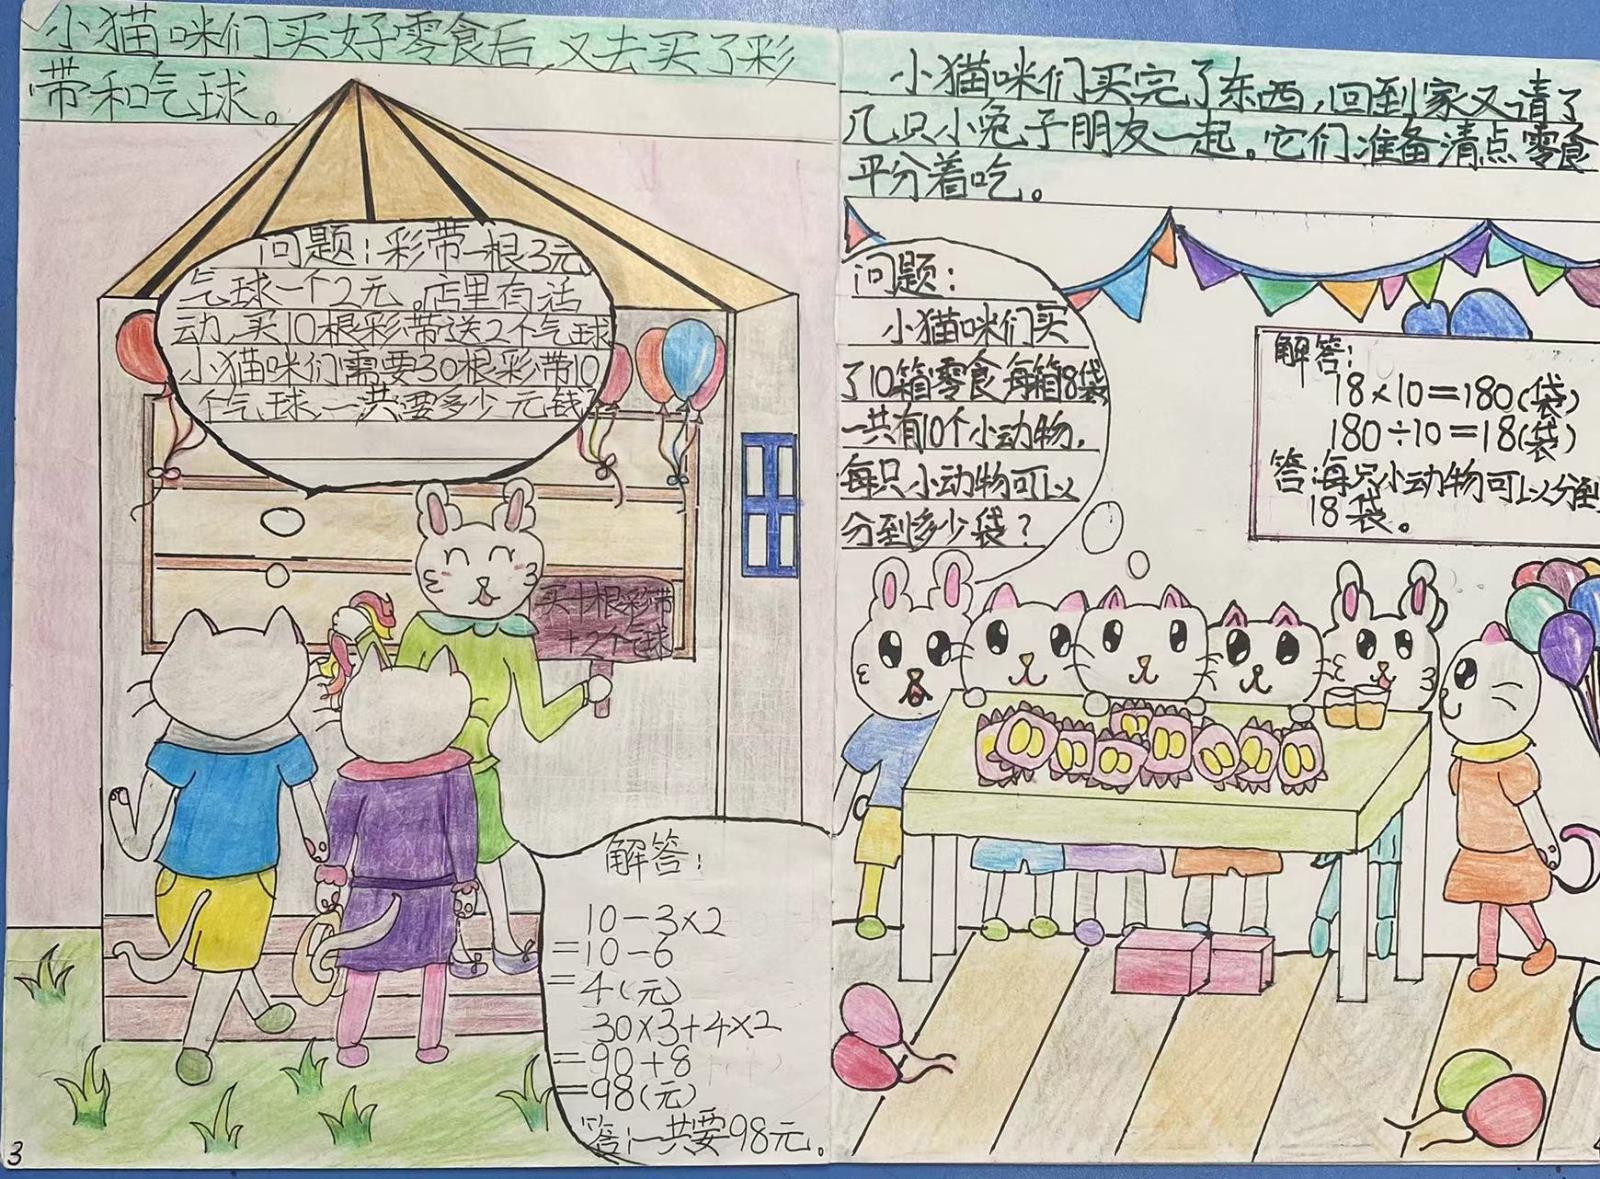 小猫咪们买好零食后,又去买了彩
带和气球。
问题:彩带一根3元
气球一个2元。店里有活
动,买10根彩带送2个气球
小猫咪们需要30根彩带10
个气球,一共要多少元钱?
买十根彩带
+2个气球
解答:
10-3×2
=10-6
=4(元)
30×3+4×2
=90+8
=98(元)
答:一共要98元。
3
小猫咪们买完了东西,回到家又请了
几只小兔子朋友一起。它们准备清点零食
平分着吃。
问题:
小猫咪们买
了10箱零食,每箱18袋
一共有10个小动物,
每只小动物可以
分到多少袋?
解答:
18×10=180(袋)
180÷10=18(袋)
答:每只小动物可以分到
18袋。